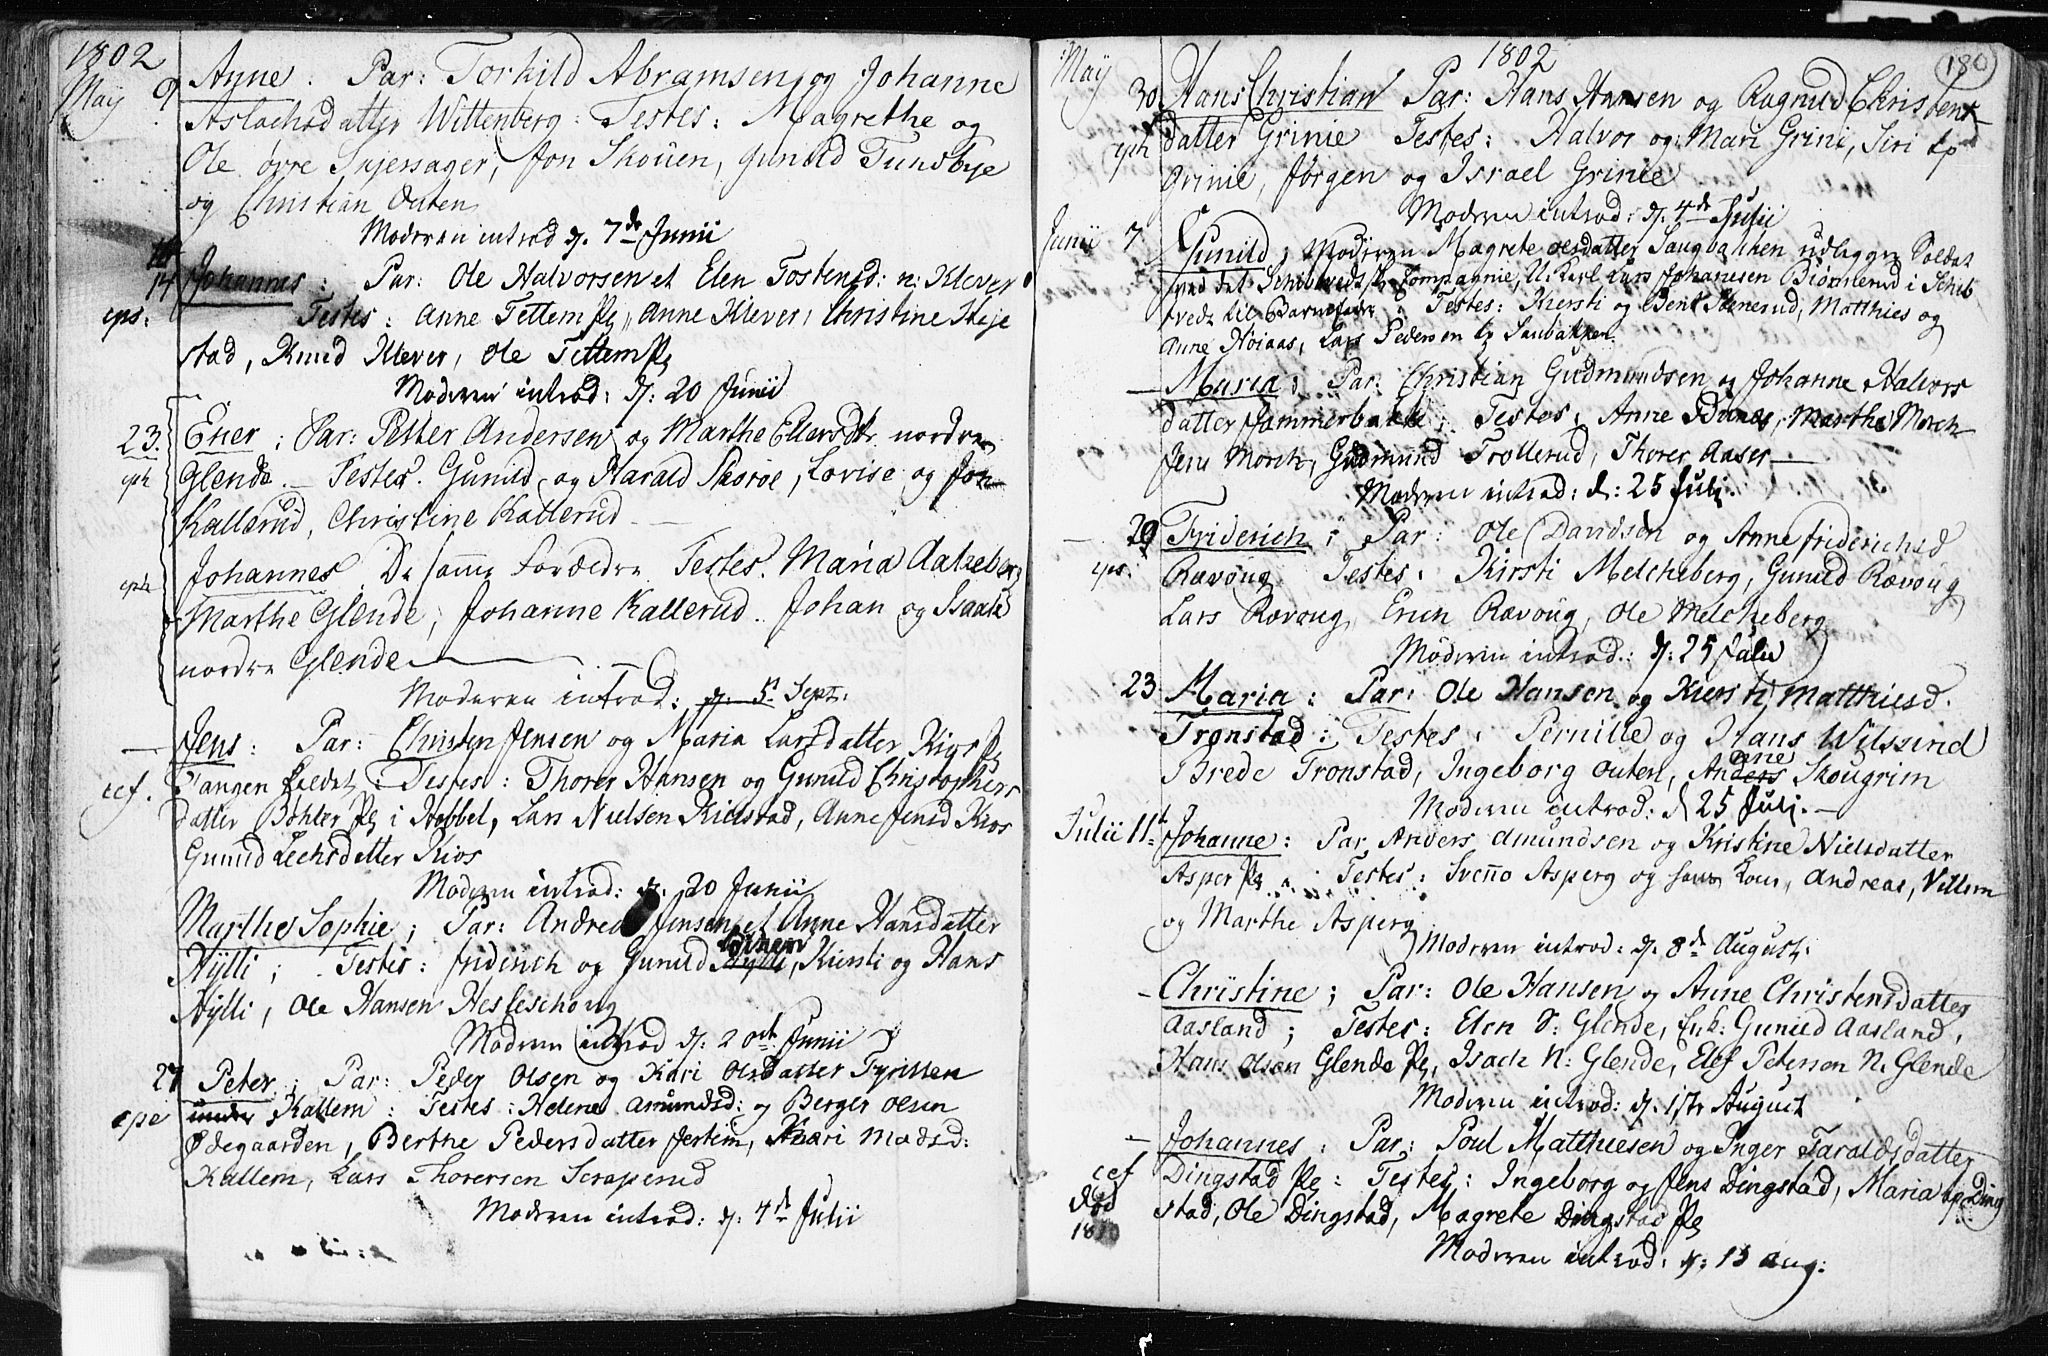 1802
May 9 Anne. Par: Torkild Abramsen og Johanne
Aslachsdatter Wittenberg: Testes: Magrethe og
Ole øvre Skjersager, Jon Skouen, Gunild Tunsbye
og Christian Outen
Moderen introd d. 7de Junii
14 Johannes: Par: Ole Halvorsen et Elen Tostensd: n: Klever
eps: Testes: Anne Tettem Pg, Anne Klever, Christine Heje
stad, Knud Klever, Ole Tettem Pg
Moderen introd: d: 20 Junii
23. Ener: Par: Petter Andersen og Marthe Ellersdtr. nordre
eph Glende. Testes. Gunild og Harald Skorøe, Lovise og Jon
Kallerud, Christine Kallerud
Johannes De samme Forældre Testes. Maria
eph Marthe Glende, Johanne Kallerud. Johan og Isaach
nordre Glende
Moderen introd: d: 5. Sept:
Jens: Par: Christen Jensen og Maria Larsdatter Kios Pg
eef. Tangen Soldat: Testes: Thorer Hansen og Gunild Christophers
datter Bøhler Pg i Hobbel, Lars Nielsen Kielstad, Anne Jensd Kios
Gunild Lechsdatter Kios
Moderen introd: d: 20 Junii
Marthe Sophie; Par: Andreas Jensen et Anne Hansdatter
Hÿlli; Testes: Friderich og Gunild Hÿlli, Kiersti og Hans
Hÿlli, Ole Hansen Hesleschoug
Moderen introd d: 20de Junii
27 Peter: Par: Peder Olsen og Kari Olsdatter Tyrillen
epe under Kallem: Testes: Helene Amundsd: og Berger Olsen
Ødegaarden, Berthe Pedersdatter Jertim, Kari Madsd:
Kallem, Lars Thoresen Scraperud
Moderen introd: d: 4de Julii
1802
180
May
30 Hans Christian Par: Hans Hansen og Ragnild Christens
eph datter Grinie Testes: Halvor og Mari Grini, Siri Ep
Grinie, Jørgen og Israel Grinie
Moderen introd: d. 4de Julii
Junii 7 Gunild; Moderen Magrete Olsdatter Saugbakken udlægger Soldat
ved det Schibtvedtske Compagnie, U. Karl Lars Johannesen Biørnerud i Schib
tvedt til Barnefader: Testes: Kiersti og Bent Stenerud, Matthies og
Anne Høiaas, Lars Pedersen Ep Saubakken
Maria; Par: Christian Gudmundsen og Johanne Halvors
datter Jammerbakke; Testes: Anne Marthe Morch
Jens Morch, Gudmund Trollerud, Thorer Aaser
Moderen introd: d: 25 Juli.
20 Friderich; Par: Ole Davidsen og Anne Friderichsd
eps. Rævoug. Testes: Kirsti Melcheberg, Gunild Rævoug
Lars Rævoug, Erich Rævoug, Ole Melcheberg
Moderen introd.: d: 25 Julii
23 Maria: Par: Ole Hansen og Kiersti Matthiesd.
Tronstad: Testes: Pernille og Hans Wilssund
Brede Tronstad, Ingeborg Outen, Anders ane Skougrim
Moderen introd: d 25 Juli.
Julii 11 Johanne: Par Anders Amundsen og Kristine Nielsdatter
Asper Pg: Testes: Svenno Asperg og hans Kone, Andreas, Villem
og Marthe Asperg
Moderen introd: d. 8de August:
Christine; Par: Ole Hansen og Anne Christensdatter
Aasland; Testes: Elen S: Glende, Enk: Gunild Aasland,
Hans Olsen Glende Pg, Isach N: Glende, Elef Petersen N. Glende
Moderen introd: d. 1ste August
Johannes: Par: Poul Matthiesen og Inger Taraldsdatter
eef Dingstad Pg: Testes: Ingeborg og Jens Dingstad, Maria Ep Ding
død stad, Ole Dingstad, Magrete Dingstad Pg
Moderen introd: d: 15 Aug: